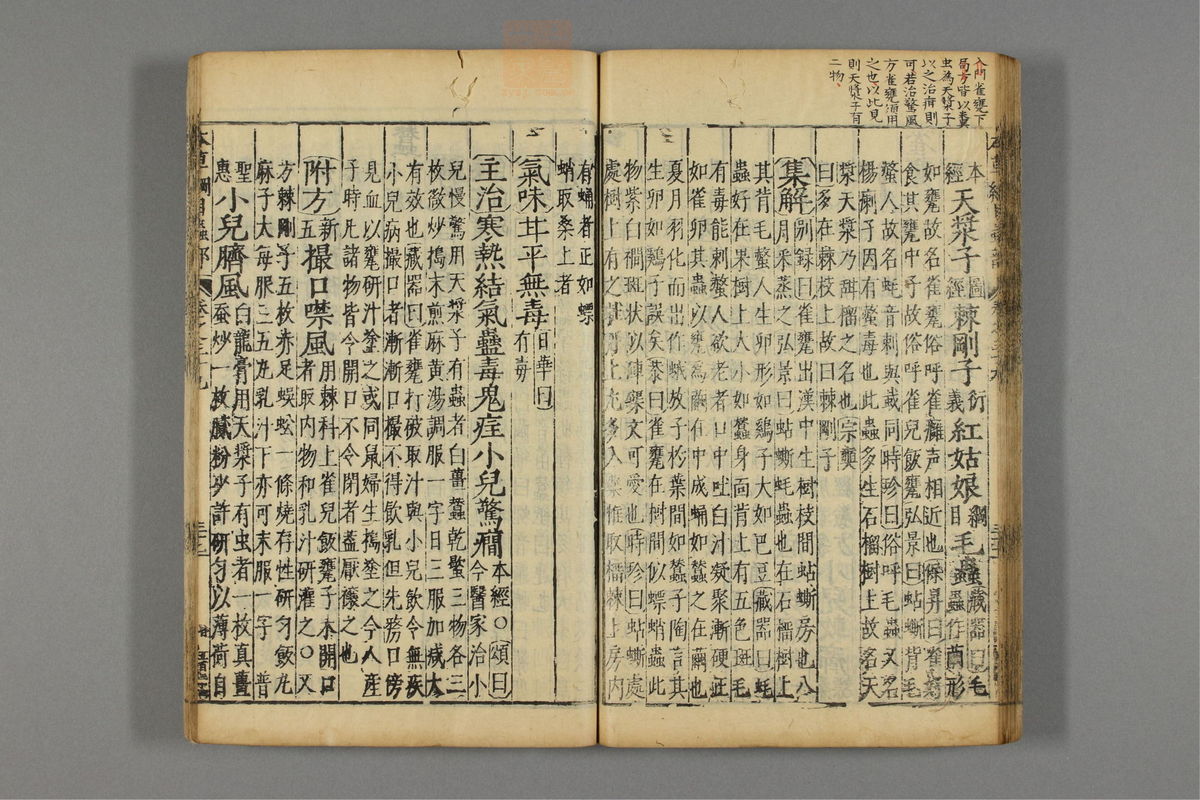 入門雀甕下
局方皆以糞
虫為天漿子
以之治疳則
可若治驚風
方雀甕酒用
之也以此見
則天漿子有
二物
本經天漿子圖經棘剛子衍義紅姑娘綱目毛蟲藏器曰毛
蟲作繭形
如甕故名雀甕俗呼雀癰声相近也保昇曰雀好
食其甕中子故俗呼雀兒飯甕弘景曰蛅蟖背毛
螫人故名蛓音刺與蛓同時珍曰俗呼毛蟲又名
楊瘌子因有螫毒也此蟲多生石榴樹上故名天
漿天漿乃甜榴之名也宗奭
曰多在棘枝上故曰棘剛子
集解別録曰雀甕出漢中生樹枝間蛅蟖房也八
月采蒸之弘景曰蛅蟖蛓蟲也在石榴樹上
其背毛螫人生卵形如鷄子大如巴豆藏器曰蛓
蟲好在果樹上大小如蠶身面背上有五色斑毛
有毒能刺螫人欲老者口中吐白汁凝聚漸硬正
如雀卵其蟲以甕為繭在中成蛹如蠶之在繭也
夏月羽化而出作蛾放子於葉間如蠶子陶言其
生卵如鷄子誤矣恭曰雀甕在樹間似螵蛸蟲此
物紫白襉斑状似硨磲文可愛也時珍曰蛅蟖處
處樹上有之牡丹上尤多入藥惟取榴棘上房内
有蛹者正如螵
蛸取桑上者
氣味甘平無毒日華曰
有毒
主治寒熱結氣蠱毒鬼疰小兒驚癎本經〇頌曰
今醫家治小
兒慢驚用天漿子有蟲者白殭蠶乾蝎三物各三
枚微炒搗末煎麻黄湯調服一字日三服加減大
有效也藏器曰雀甕打破取汁與小兒飲令無疾
小兒病撮口者漸漸口撮不得飲乳但先剺口傍
見血以甕研汁塗之或同鼠婦生搗塗之今人産
子時凡諸物皆令開口不令閉者蓋厭禳之也
附方新五撮口噤風用棘科上雀兒飯甕子未開口
者取内物和乳汁研灌之〇又
方棘剛子五枚赤足蜈蚣一條燒存性研匀飯丸
麻子大每服三五丸乳汁下亦可末服一字普
聖惠小兒臍風白龍膏用天漿子有虫者一枚真殭
蚕炒一枚膩粉少許研匀以薄荷自